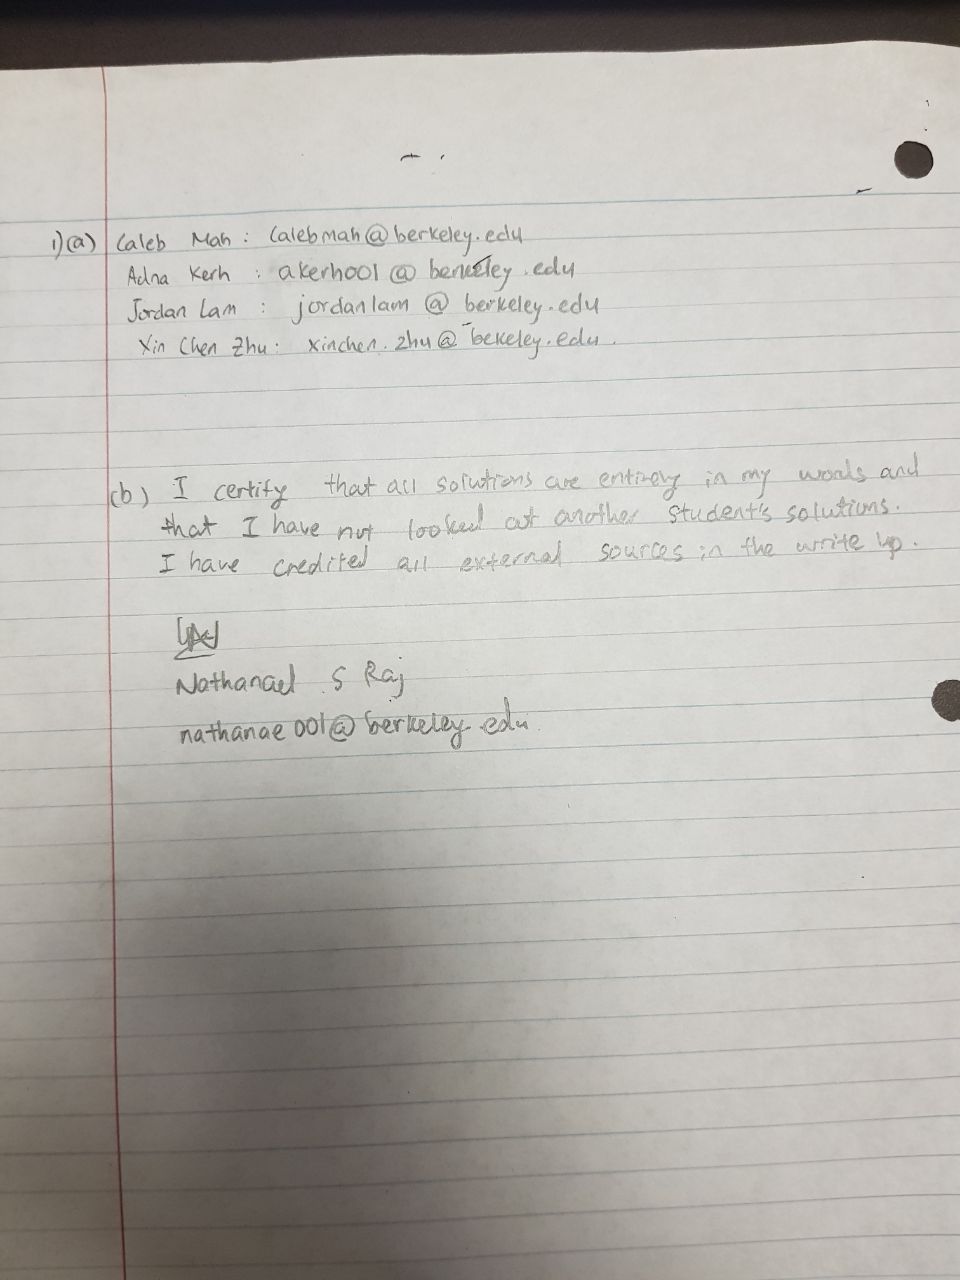 1)(a) Caleb Mah : calebmah@berkeley.edu
Adna Kerh : akerh001@berkeley.edu
Jordan Lam : jordanlam@berkeley.edu
Xin Chen Zhu : xinchen.zhu@bekeley.edu.
(b) I certify that all solutions are entirely in my words and
that I have not looked at another student's solutions.
I have credited all external sources in the write up.
Nathanael S Raj
nathanae001@berkeley.edu